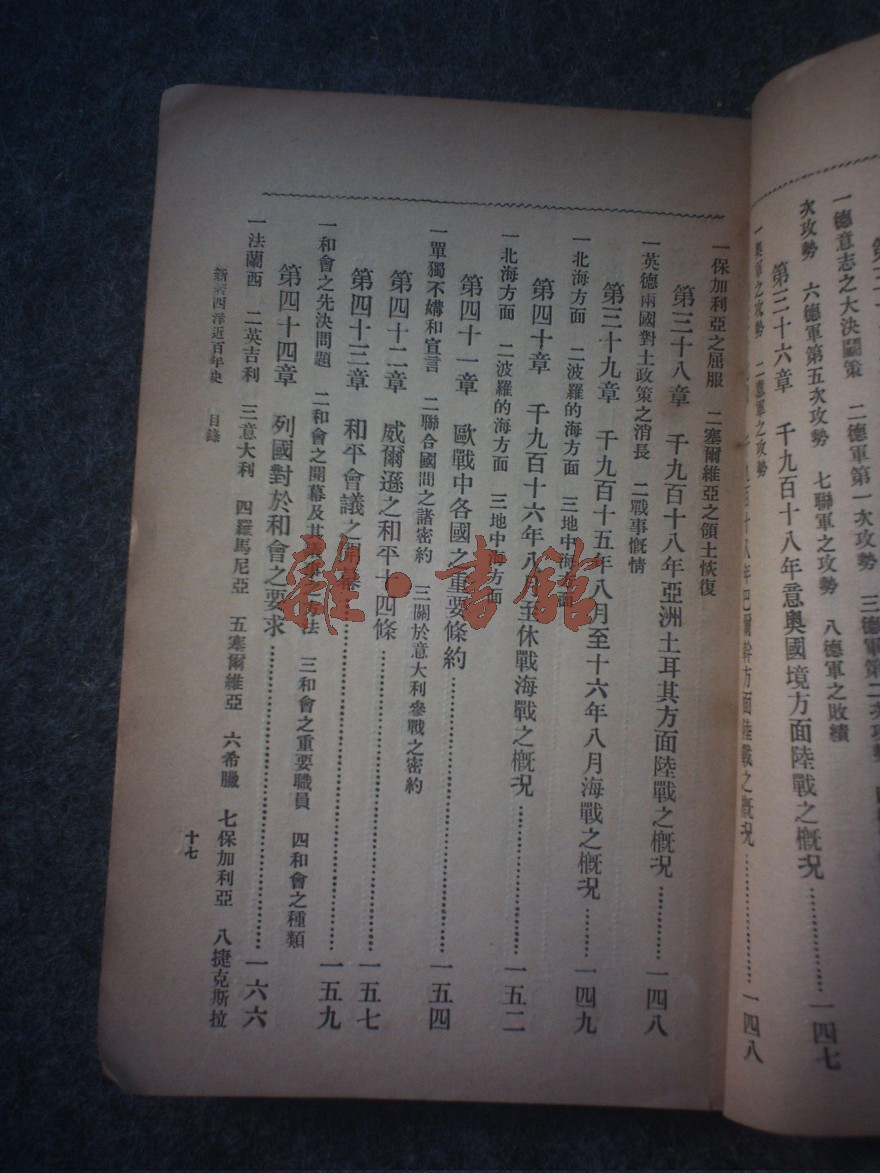 一德意志之大決鬭策　二德軍第一次攻勢　三德軍第二次攻勢
次攻勢　六德軍第五次攻勢　七聯軍之攻勢　八德軍之敗績
第三十六章　千九百十八年意奧國境方面陸戰之概況…………一四七
一奧軍之攻勢　二意軍之攻勢
千九百十八年巴爾幹方面陸戰之概況…………一四八
一保加利亞之屈服　二塞爾維亞之領土恢復
第三十八章　千九百十八年亞洲土耳其方面陸戰之概況…………一四八
一英德兩國對土政策之消長　二戰事慨情
第三十九章　千九百十五年八月至十六年八月海戰之概況…………一四九
一北海方面　二波羅的海方面　三地中海方面
第四十章　千九百十六年八月至休戰海戰之概況…………一五二
一北海方面　二波羅的海方面　三地中海方面
第四十一章　歐戰中各國之重要條約…………一五四
一單獨不媾和宣言　二聯合國間之諸密約　三關於意大利參戰之密約
第四十二章　威爾遜之和平十四條…………一五七
第四十三章　和平會議之開幕…………一五九
一和會之先決問題　二和會之開幕及其議事之方法　三和會之重要職員　四和會之種類
第四十四章　列國對於和會之要求…………一六六
一法蘭西　二英吉利　三意大利　四羅馬尼亞　五塞爾維亞　六希臘　七保加利亞　八捷克斯拉
西洋近百年史　目錄
十七
雜·書館